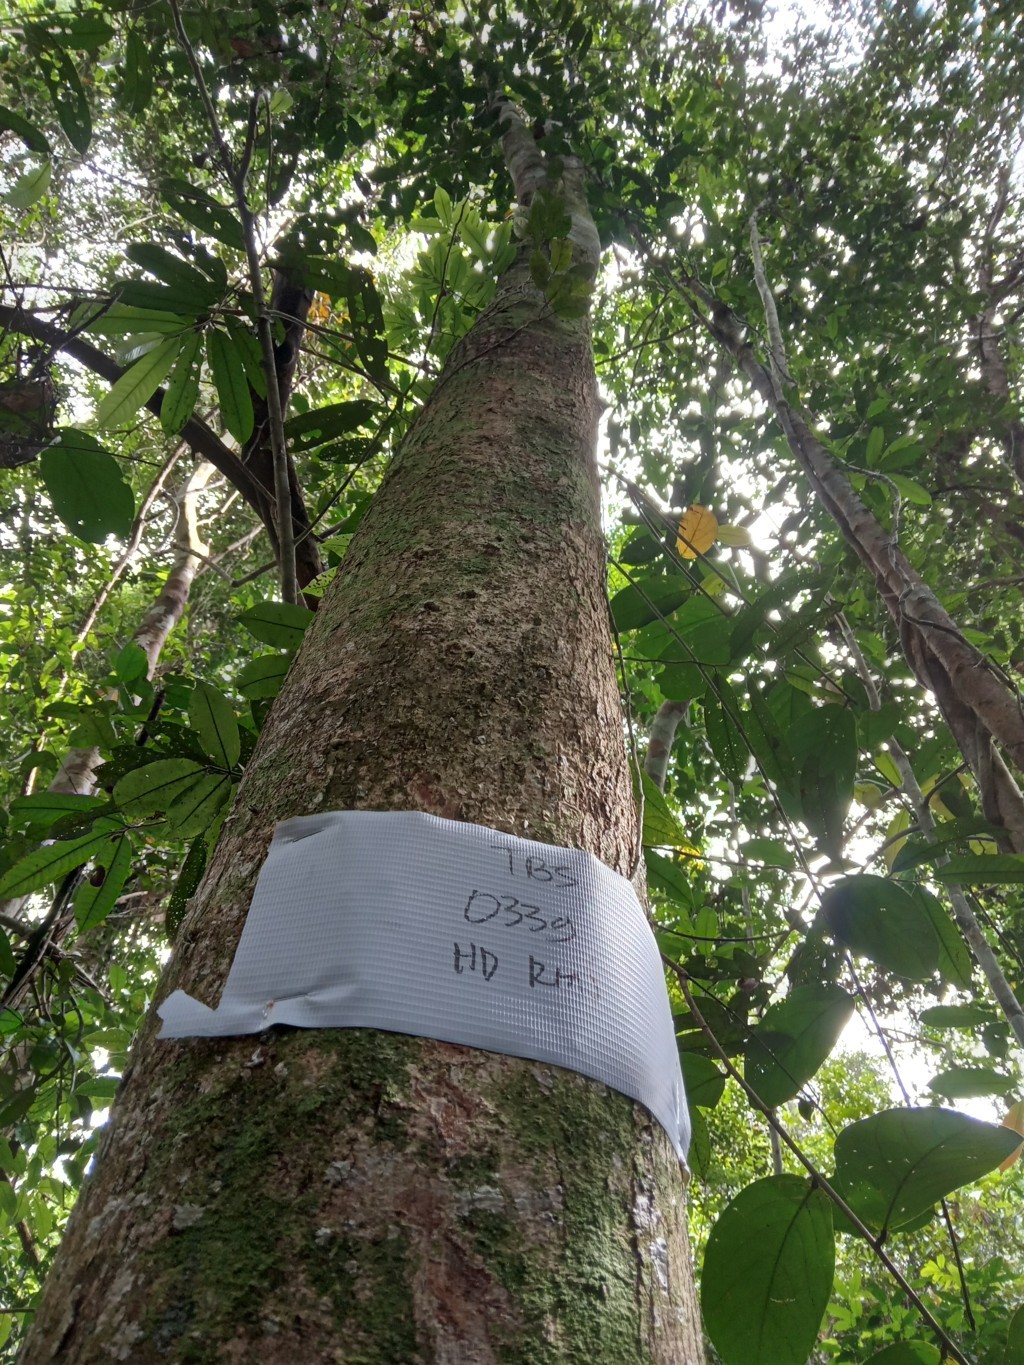 TBS
0339
HD RH